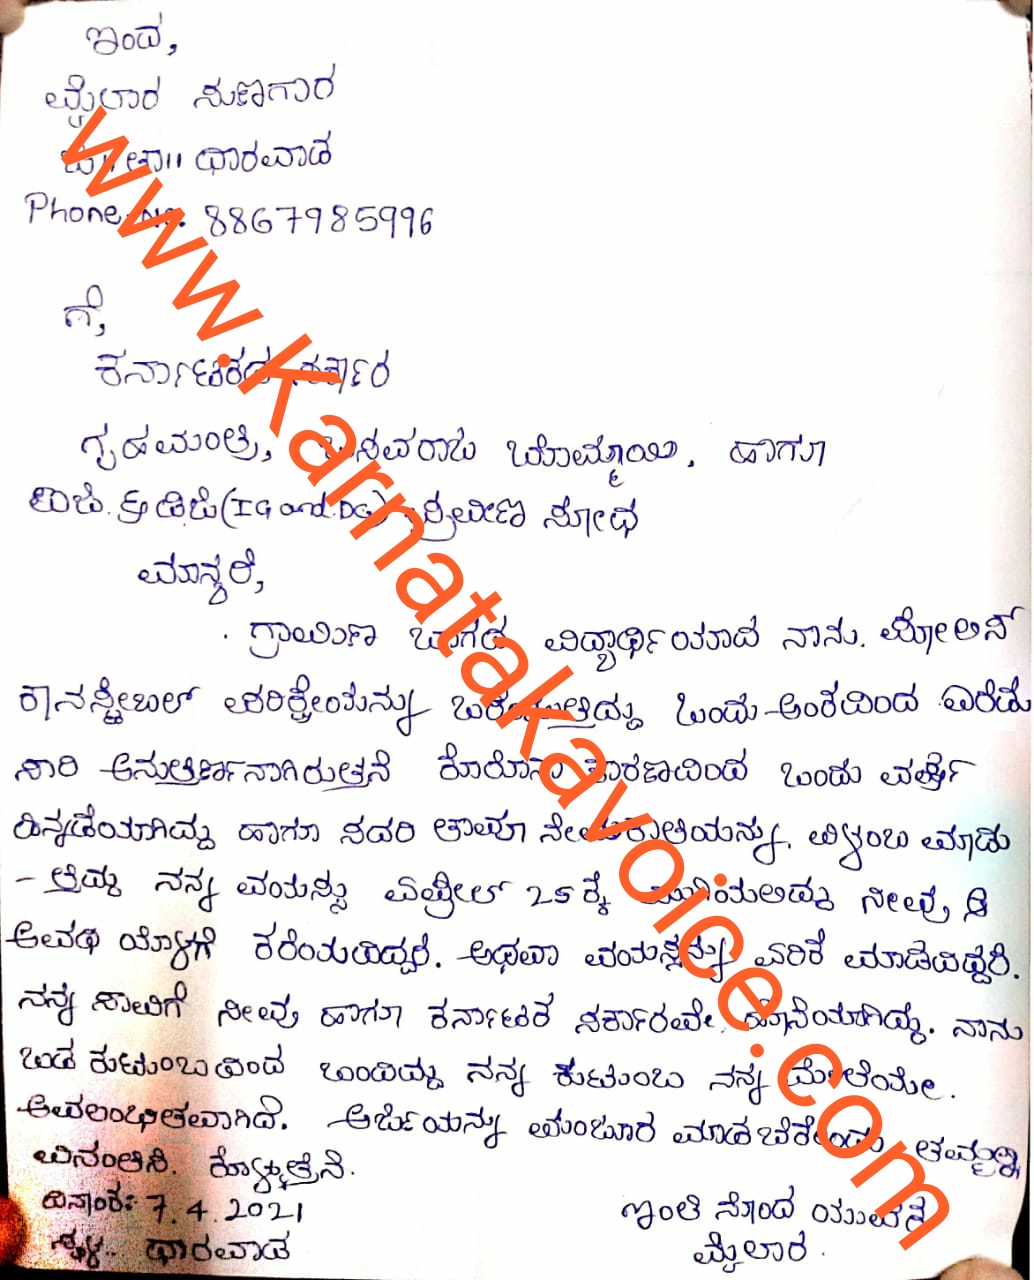 ಇಂದ,
ಮೈಲಾರ ಸುಣಗಾರ
ಜಿ॥ ತಾ॥ ಧಾರವಾಡ
Phone No. 8867985996
ಗೆ,
ಕರ್ನಾಟಕದ ಸರ್ಕಾರ
ಗೃಹಮಂತ್ರಿ, ಬಸವರಾಜ ಬೋಮ್ಮಾಯಿ, ಹಾಗೂ
ಐಜಿ ಡಿಜಿ (IG and DG) ಪ್ರವೀಣ ಸೋಧ
ಮಾನ್ಯರೆ,
ಗ್ರಾಮಿಣ ಬಾಗದ ವಿದ್ಯಾರ್ಥಿಯಾದ ನಾನು. ಪೋಲಿಸ್
ಕಾನಸ್ಟೇಬಲ್ ಪರಿಕ್ಷೇಯನ್ನು ಬರೆಯುತ್ತಿದ್ದು ಒಂದು ಅಂಕದಿಂದ ಎರಡು
ಸಾರಿ ಅನುತ್ತರ್ಣನಾಗಿರುತ್ತನೆ ಕೊರೊನಾ ಕಾರಣದಿಂದ ಒಂದು ವರ್ಷ
ಹಿನ್ನಡೆಯಾಗಿದ್ದು ಹಾಗೂ ಸದರಿ ತಾವೂ ನೇಮಕಾತಿಯನ್ನು. ವಿಳಂಬ ಮಾಡು
- ತ್ತಿದ್ದು ನನ್ನ ವಯಸ್ಸು ಏಪ್ರೀಲ್ 25 ಕ್ಕೆ ಮುಗಿಯಲಿದ್ದು ನೀವು ಆ
ಅವಧಿ ಯೊಳಗೆ ಕರೆಯದಿದ್ದರೆ. ಅಥವಾ ವಯಸ್ಸನ್ನು ಏರಿಕೆ ಮಾಡದಿದ್ದರೆ.
ನನ್ನ ಸಾವಿಗೆ ನೀವು ಹಾಗೂ ಕರ್ನಾಟಕ ಸರ್ಕಾರವೇ ಹೊಣೆಯಾಗಿದ್ದು. ನಾನು
ಬಡ ಕುಟುಂಬದಿಂದ ಬಂದಿದ್ದು ನನ್ನ ಕುಟುಂಬ ನನ್ನ ಮೇಲೆಯೇ.
ಅವಲಂಭಿತವಾಗಿದೆ. ಅರ್ಜಿಯನ್ನು ಮಂಜೂರ ಮಾಡಬೆಕೆಂದು ತಮ್ಮಲ್ಲಿ
ವಿನಂತಿಸಿ. ಕೊಳ್ಳುತ್ತೆನೆ.
ದಿನಾಂಕ: 7.4.2021
ಸ್ಥಳ.. ಧಾರವಾಡ
ಇಂತಿ ನೊಂದ ಯುವಕ
ಮೈಲಾರ.
www.karnatakavoice.com